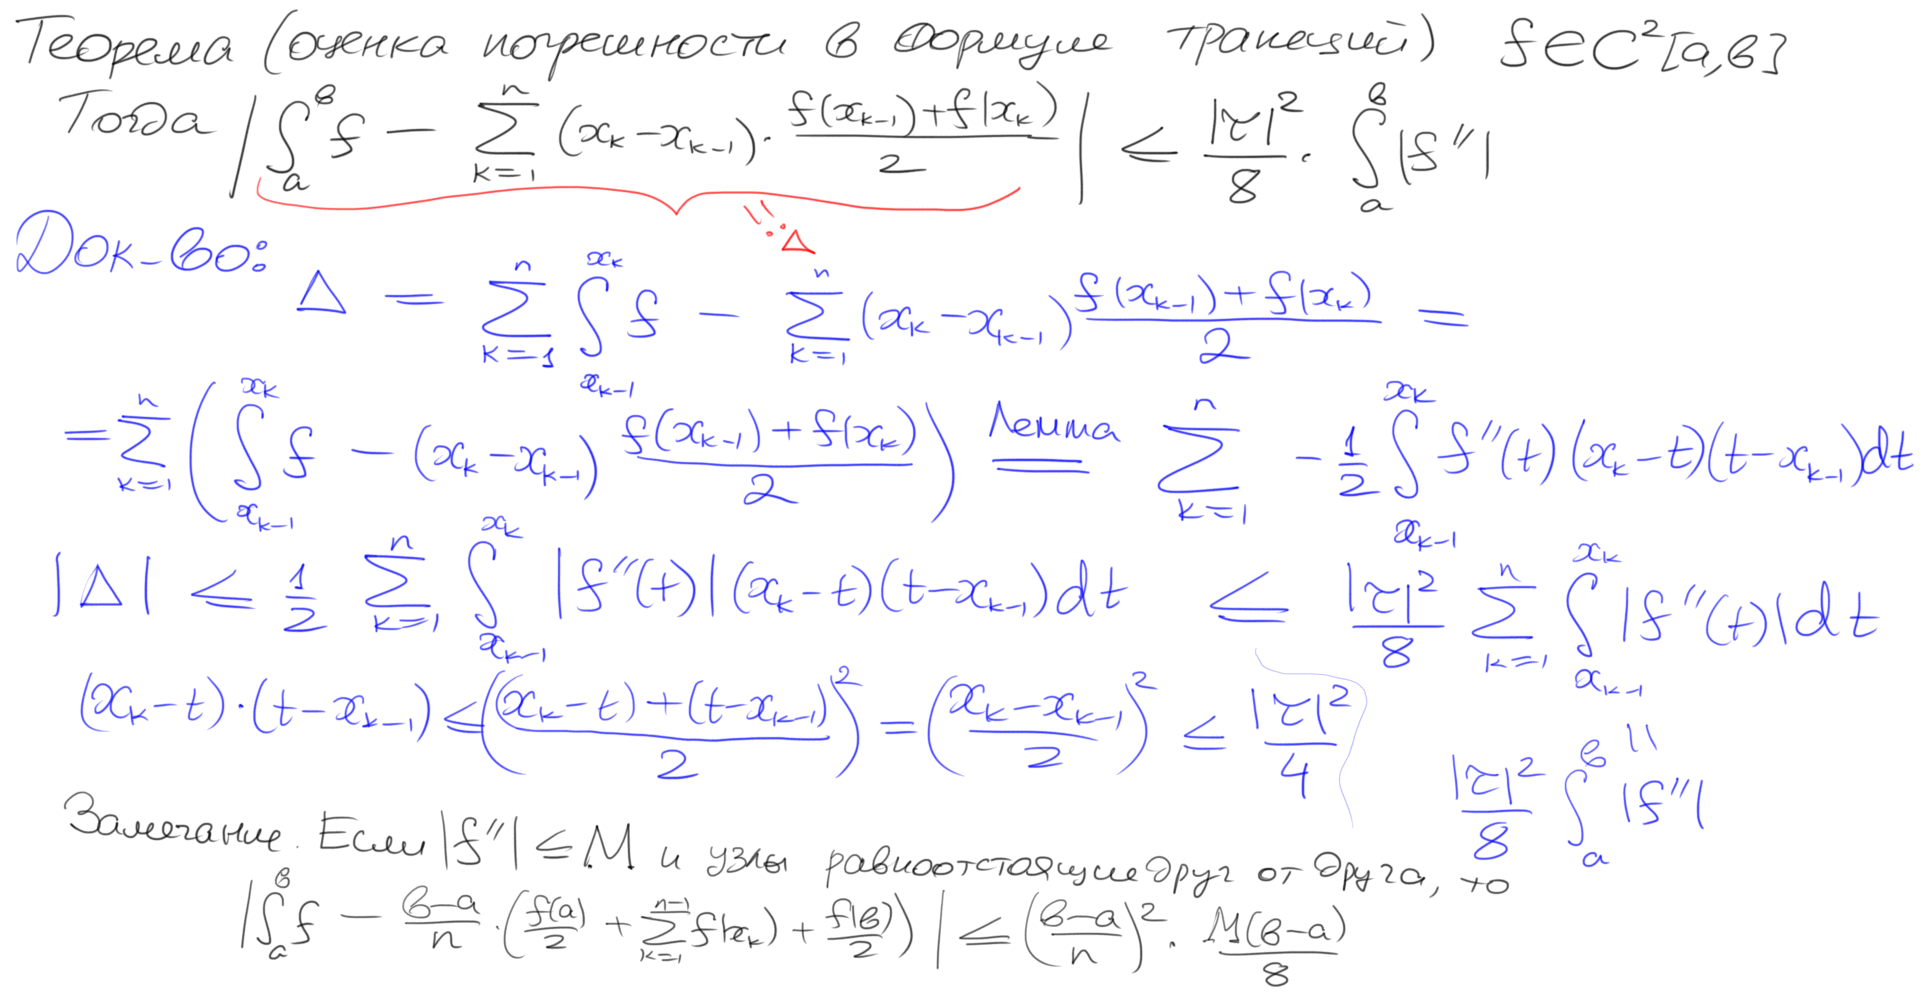 Теорема (оценка погрешности в формуле трапеций) f∈C²[a,b]
Тогда |∫_a^b f − ∑_{k=1}^n (x_k−x_{k−1})· (f(x_{k−1})+f(x_k))/2 | ≤ |τ|²/8 · ∫_a^b |f″|
=: Δ
Док-во: Δ = ∑_{k=1}^n ∫_{x_{k−1}}^{x_k} f − ∑_{k=1}^n (x_k−x_{k−1}) (f(x_{k−1})+f(x_k))/2 =
= ∑_{k=1}^n ( ∫_{x_{k−1}}^{x_k} f − (x_k−x_{k−1}) (f(x_{k−1})+f(x_k))/2 ) = Лемма ∑_{k=1}^n −1/2 ∫_{x_{k−1}}^{x_k} f″(t)(x_k−t)(t−x_{k−1})dt
|Δ| ≤ 1/2 ∑_{k=1}^n ∫_{x_{k−1}}^{x_k} |f″(t)|(x_k−t)(t−x_{k−1})dt ≤ |τ|²/8 ∑_{k=1}^n ∫_{x_{k−1}}^{x_k} |f″(t)|dt
(x_k−t)·(t−x_{k−1}) ≤ (((x_k−t)+(t−x_{k−1}))/2)² = ((x_k−x_{k−1})/2)² ≤ |τ|²/4
=
|τ|²/8 ∫_a^b |f″|
Замечание. Если |f″| ≤ M и узлы равноотстоящие друг от друга, то
|∫_a^b f − (b−a)/n · (f(a)/2 + ∑_{k=1}^{n−1} f(x_k) + f(b)/2)| ≤ ((b−a)/n)² · M(b−a)/8